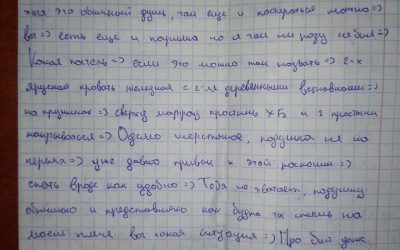 хотя это обычный душ, там еще и постираться можно =)
вот =) есть еще и парилка но я там ни разу не был =)
Какая постель =) если это можно так назвать =) 2-х
ярусная кровать железная с 2-мя деревянными
на пружинах =) сверху матрац простынь ХБ и 2 простыни
накрываться =) Одеяло шерстяное, подушка не из
перьев =) уже давно привык к этой роскоши =)
спать вроде как удобно =) Тебя не хватает, подушку
обнимаю и представляю как будто ты спишь на
моем плече вот такая ситуация =) Про быт даже